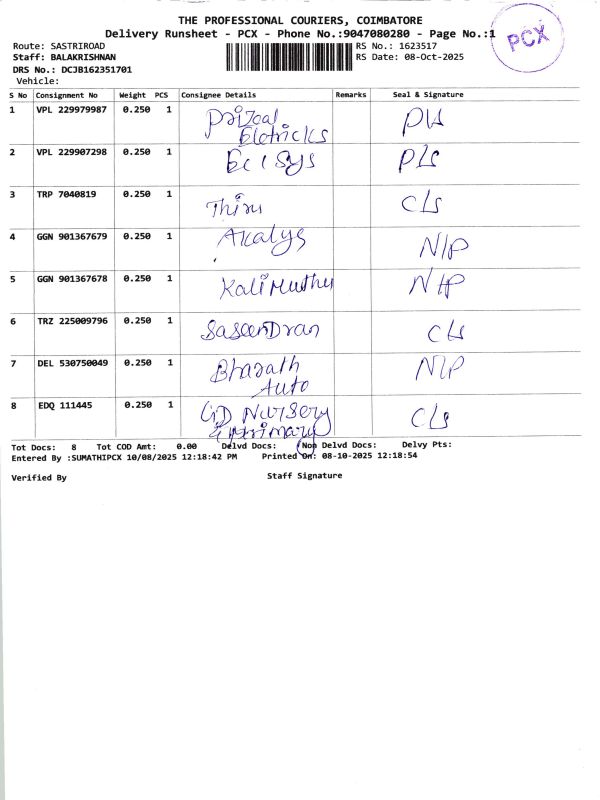 THE PROFESSIONAL COURIERS, COIMBATORE
Delivery Runsheet - PCX - Phone No.:9047080280 - Page No.:1
PCX
Route: SASTRIROAD
RS No.: 1623517
Staff: BALAKRISHNAN
RS Date: 08-Oct-2025
DRS No.: DCJB162351701
Vehicle:
S No Consignment No Weight PCS Consignee Details Remarks Seal & Signature
1 VPL 229979987 0.250 1
2 VPL 229907298 0.250 1
3 TRP 7040819 0.250 1 Thiru CLS
4 GGN 901367679 0.250 1 N/P
5 GGN 901367678 0.250 1 Kali Muthu N/P
6 TRZ 225009796 0.250 1 Saseendran CLS
7 DEL 530750049 0.250 1 Bharath N/P
Auto
8 EDQ 111445 0.250 1 GD Nursery CLS
& primary
Tot Docs: 8 Tot COD Amt: 0.00 Delvd Docs: Non Delvd Docs: Delvy Pts:
Entered By :SUMATHIPCX 10/08/2025 12:18:42 PM Printed On: 08-10-2025 12:18:54
Verified By Staff Signature